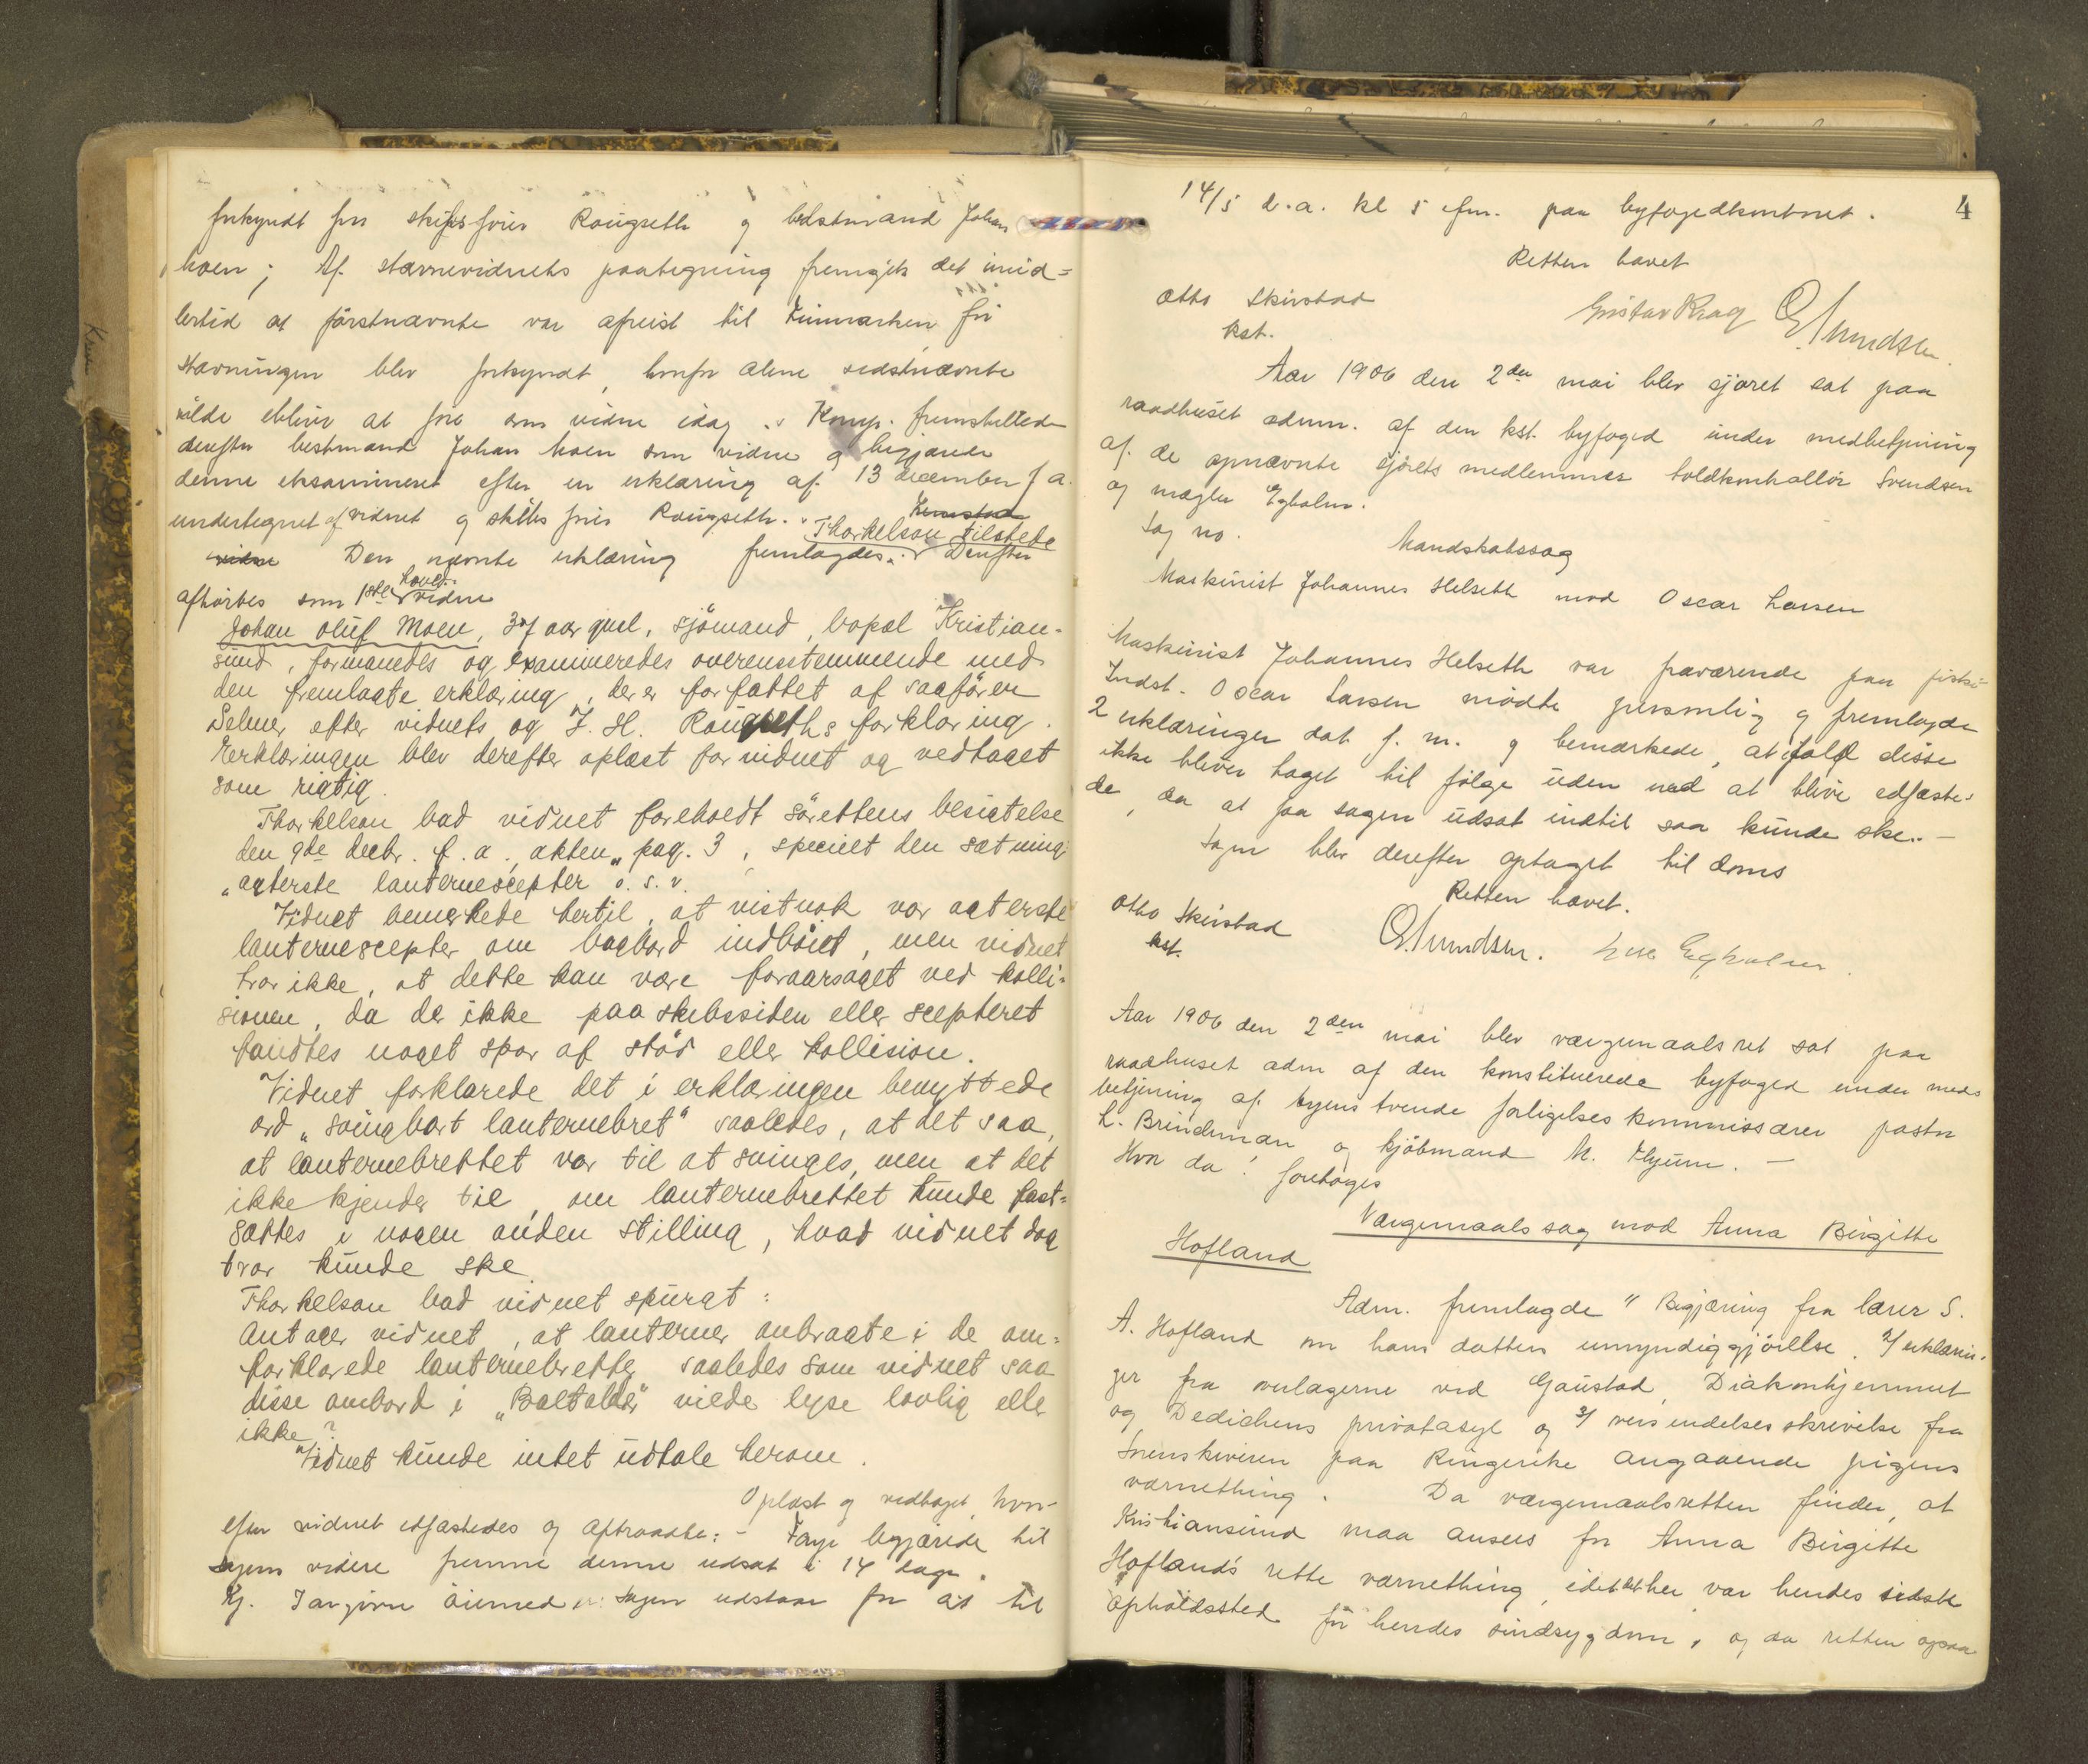 forkyndt for skibsfører Rougseth og bedstmand Johan
Moen; Af stævnevidnets paategning fremgik det imid=
lertid at førstnævnte var afreist til Finmarken før
stævningen blev forkyndt, hvorfor alene sidstnævnte
vilde blive at føre som vidne idag. Komp. fremstillede
derefter bestmand Johan Moen som vidne og begjærede
denne eksamineret efter en erklæring af 13 december f a.
undertegnet af vidnet og skibsfører Rougseth.
Thorkelson tilstede
Den nævnte erklæring fremlagdes. Derefter
afhørtes som 1ste hoved- vidne
Johan Oluf Moen, 37 aar gml. sjömand, bopæl Kristian-
sund, formanedes og examineredes overensstemmende med
den fremlagte erklæring, der er forfattet af sagförer
Selmer efter vidnets og J. H. Rougseths forklaring.
Erklæringen blev derefter oplæst for vidnet og vedtaget
som rigtig.
Thorkelson bad vidnet foreholdt sörettens besigtelse
den 9de decbr. f. a., akten „pag. 3, specielt den sætning
„agterste lanternescepter o. s. v.
Vidnet bemerkede hertil, at vistnok var agterste
lanternescepter om bagbord indböiet, men vidnet
tror ikke, at dette kan være foraarsaget ved kolli-
sionen, da der ikke paa skibssiden eller scepteret
fandtes noget spor af stöd eller kollision.
Vidnet forklarede det i erklæringen benyttede
ord „svingbart lanternebret" saaledes, at det saa,
at lanternebrettet var til at svinges, men at det
ikke kjender til, om lanternebrettet kunde fast=
sættes i nogen anden stilling, hvad vidnet dog
tror kunde ske.
Thorkelson bad vidnet spurgt:
Antager vidnet, at lanterner anbragte i de om=
forklarede lanternebretter saaledes som vidnet saa
disse ombord i „Baltalder" vilde lyse lovlig eller
ikke?
Vidnet kunde intet udtale herom.
Oplæst og vedtaget, hvor-
efter vidnet edfæstedes og aftraadte: - Faye begjærede til
sagens videre fremme denne udsat i 14 dage.
Kj. Eragivne sagen udstaar for at til
14/5 d.a. kl 5 efm. paa byfogedkontoret.
4
Retten hævet
Otto Skirstad
kst.
Gustav Krag
Aar 1906 den 2den mai blev sjøret sat paa
raadhuset adm. af den kst. byfoged under medbetjening
af de opnævnte sjørets medlemmer toldkontrollør Svendsen
og mægler Egholm.
Sag no.
Mandskabssag
Maskinist Johannes Helseth mod Oscar Larsen
Maskinist Johannes Helseth var fraværende paa fiske-
Indst. Oscar Larsen mødte personlig og fremlagde
2 erklæringer dat. f. m. og bemærkede, at ifald disse
ikke bliver taget til følge uden ved at blive edfæste-
de, da at faa sagen udsat indtil saa kunde ske. -
Sagen blev derefter optaget til doms
Retten hævet.
Otto Skirstad
kst.
Egholm
Aar 1906 den 2den mai blev værgemaalsret sat paa
raadhuset adm af den konstituerede byfoged under med-
betjening af byens tvende forligelseskommissærer pastor
L. Brinchman og kjöbmand M. Hjum. -
Hvor da: foretoges
Værgemaals sag mod Anna Birgitte
Hofland
Adm. fremlagde 1/ Begjæring fra lærer S.
A. Hofland om hans datters umyndiggjörelse. 2/ erklærin-
ger fra overlægerne ved Gaustad, Diakonhjemmet
og Dedichens privatasyl og 3/ oversendelsesskrivelse fra
Sorenskriveren paa Ringerike angaaende pigens
værnething. Da værgemaalsretten finder, at
Kristiansund maa ansees for Anna Birgitte
Hofland's rette værnething, idet det her var hendes sidste
opholdssted før hendes sindssygdom, og da retten ogsaa